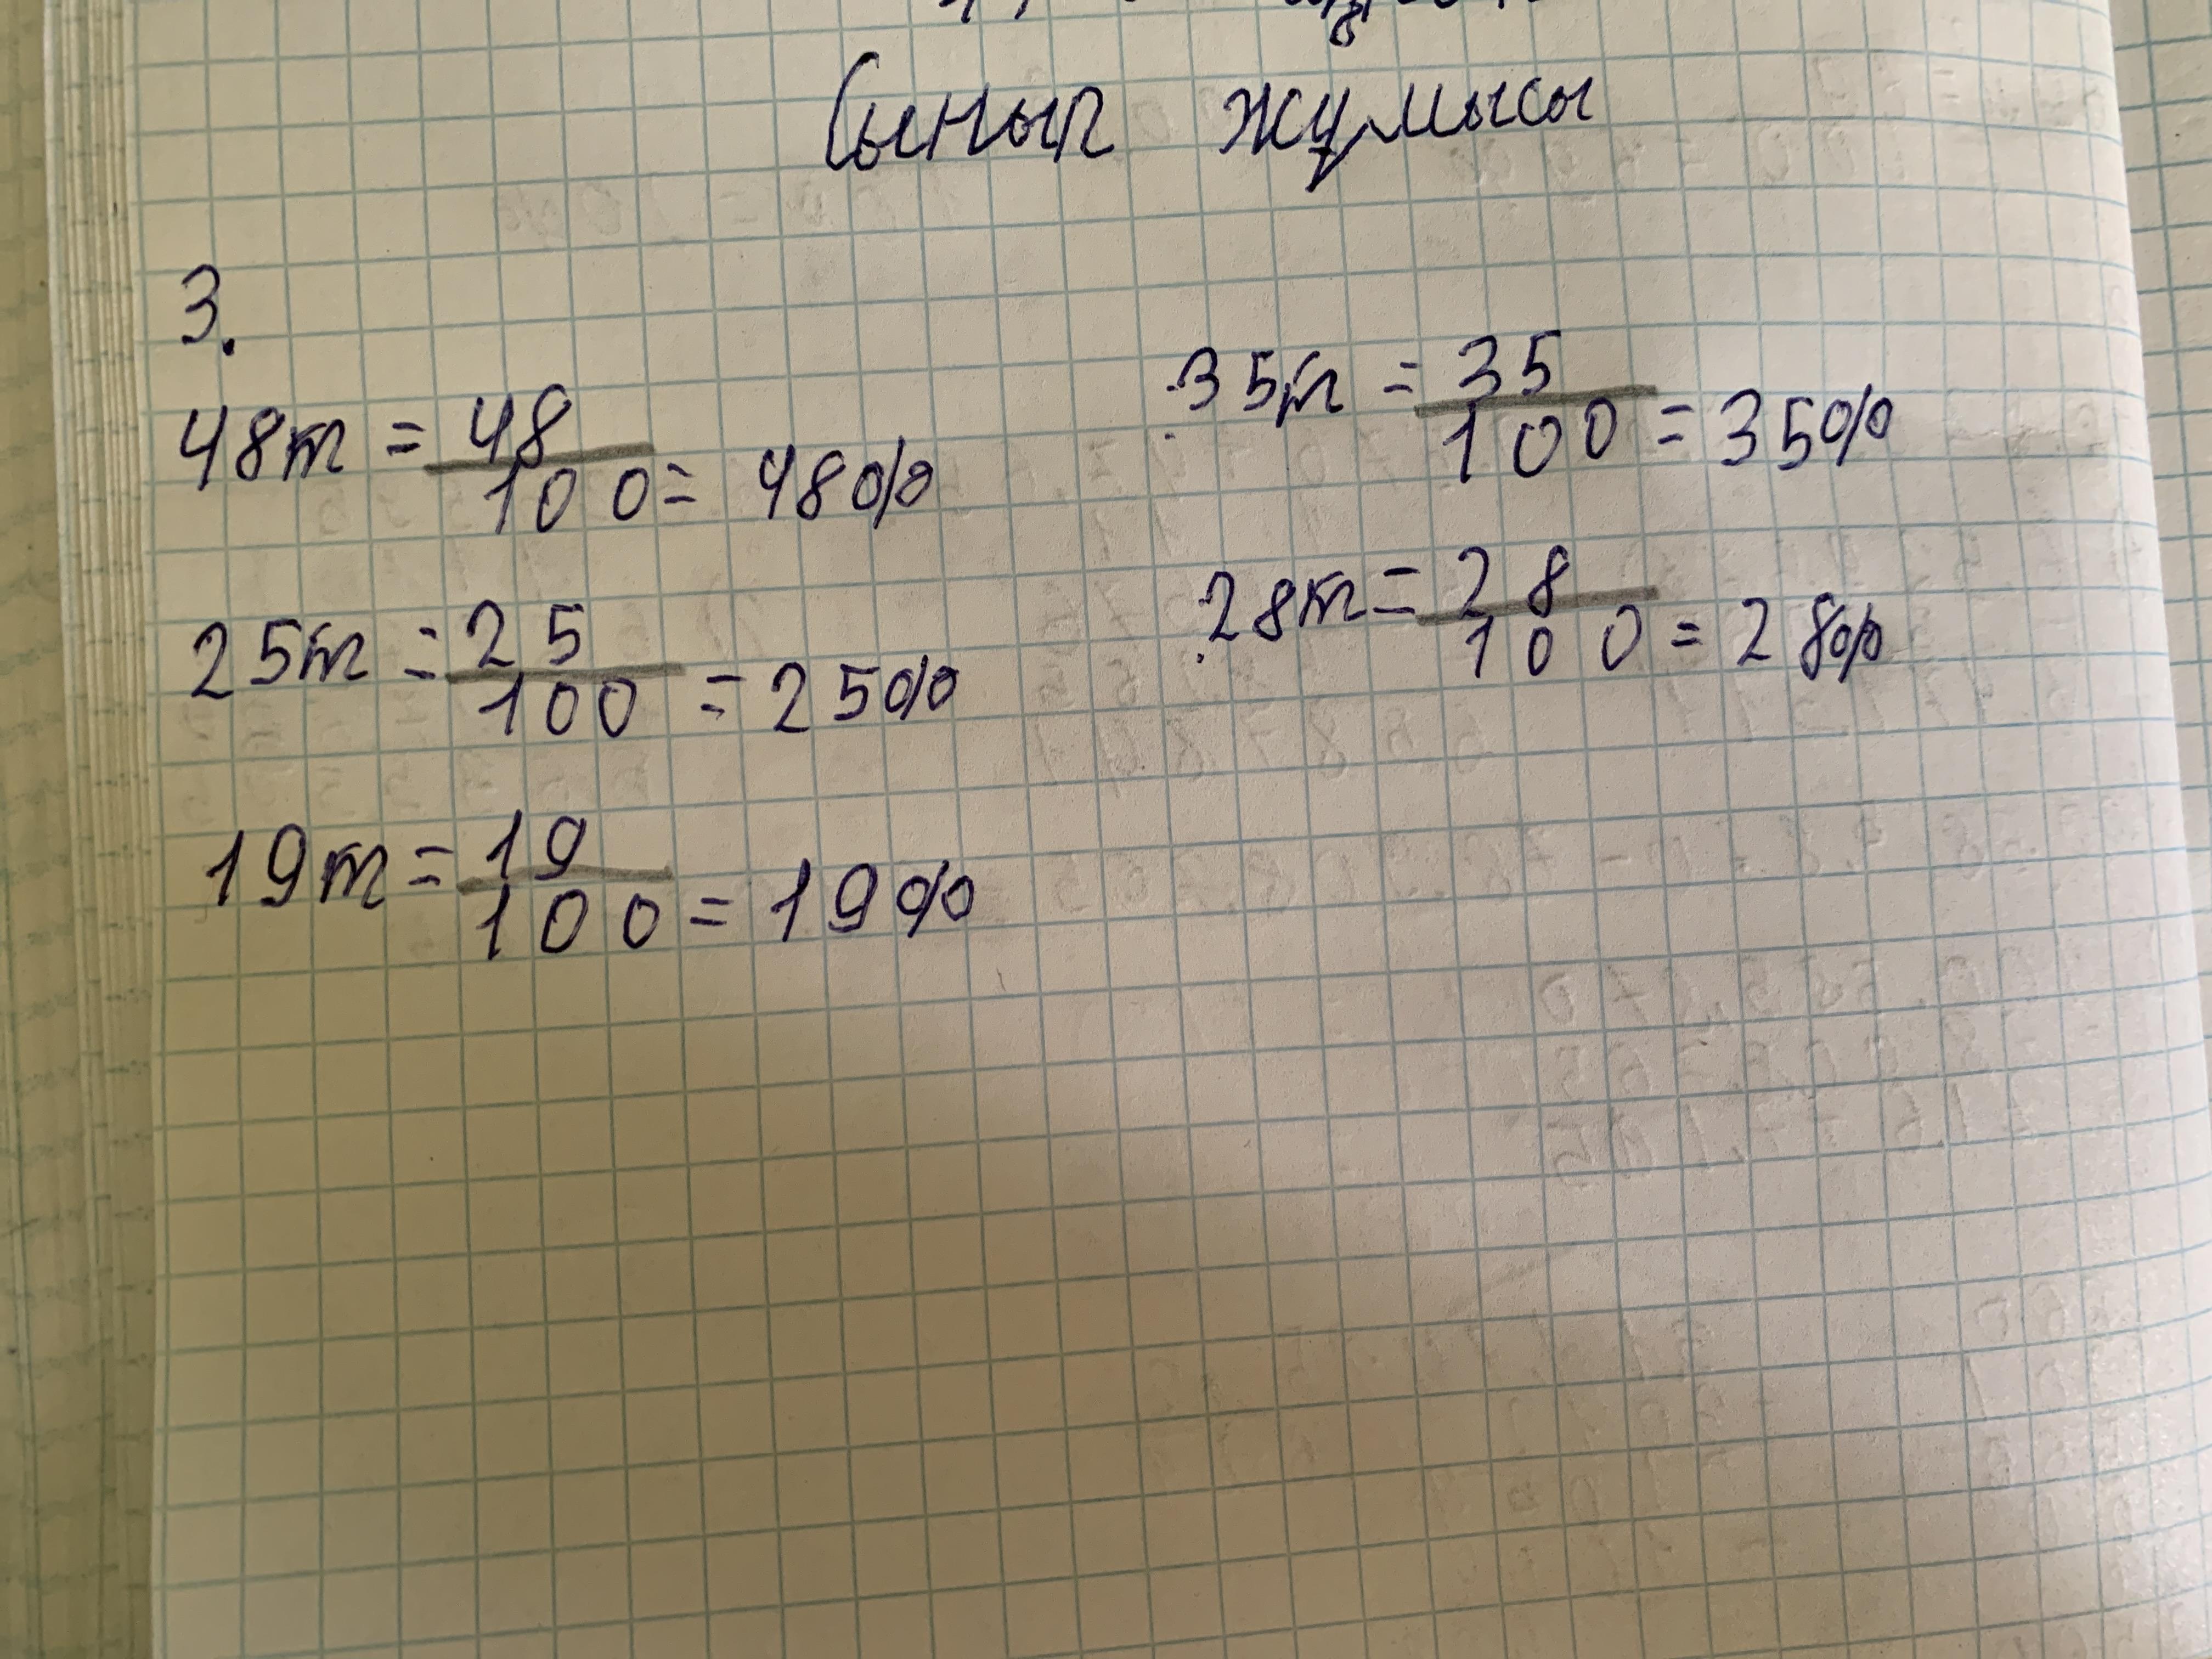 Сынып жұмысы
3.
48т = 48/100 = 48%
25т = 25/100 = 25%
19т = 19/100 = 19%
35т = 35/100 = 35%
28т = 28/100 = 28%